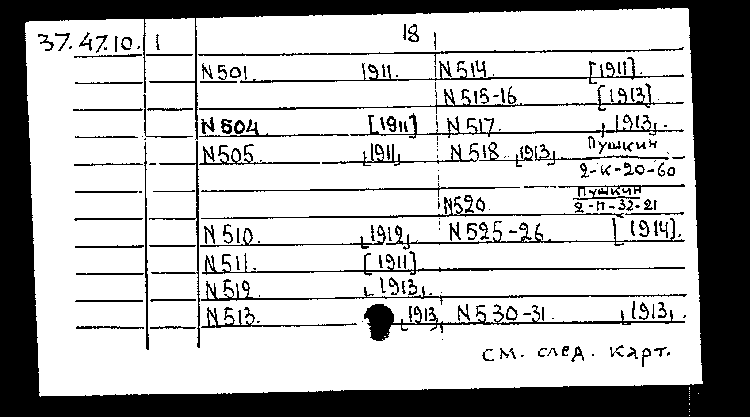 18
37.47.10. 1
N 501. 1911. N 514. [1911].
N 515-16. [1913]
N 504 [1911] N 517. 1913.
N 505. 1911. N 518. 1913. Пушкин
2-К-20-60
N520 Пушкин
2-П-32-21
N 510. 1912. N 525-26. [1914].
N 511. [1911]
N 512. 1913.
N 513. 1913. N 530-31. 1913.
см. след. карт.